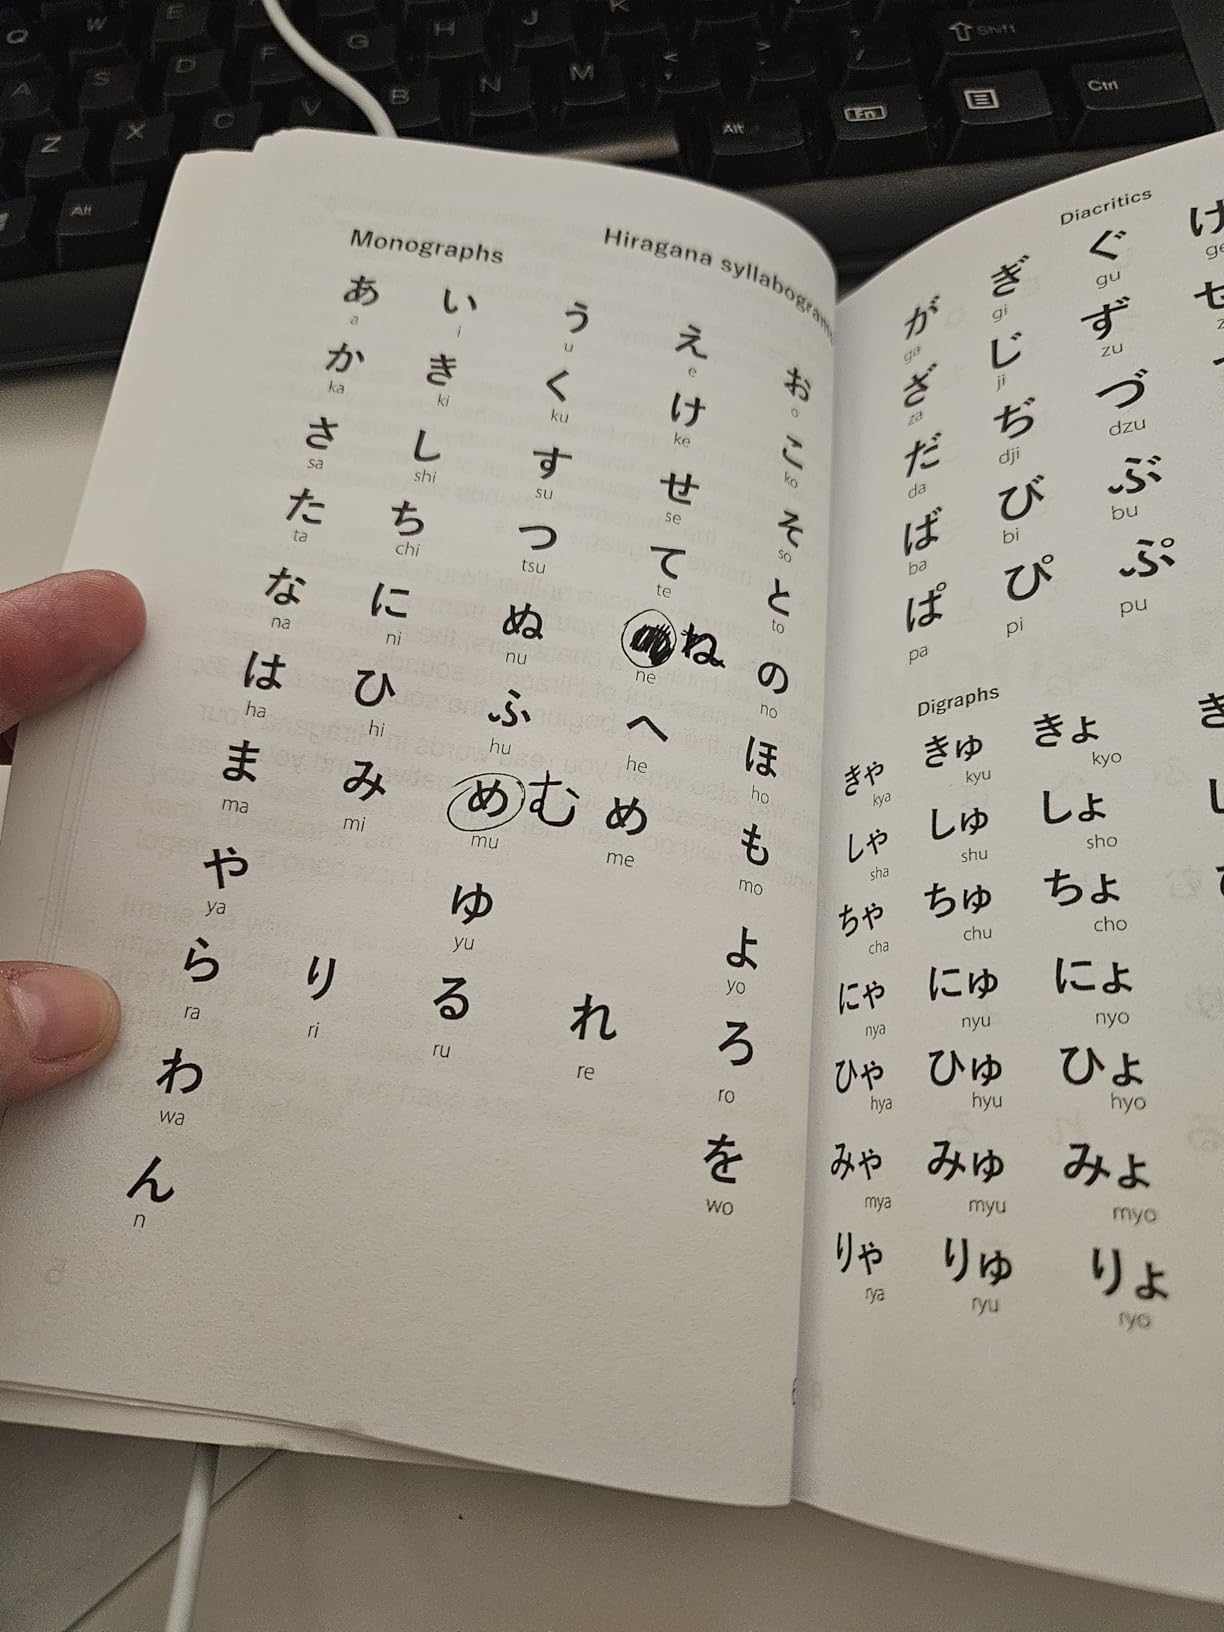 Q W E H J K
A S D F G
Z X C V B N M < , > .
Shift
Alt Alt Fn Ctrl
Monographs
Hiragana syllabograms
あ い う え お
a i u e o
か き く け こ
ka ki ku ke ko
さ し す せ そ
sa shi su se so
た ち つ て と
ta chi tsu te to
な に ぬ ね の
na ni nu ne no
は ひ ふ へ ほ
ha hi hu he ho
ま み め む め も
ma mi mu me mo
や ゆ よ
ya yu yo
ら り る れ ろ
ra ri ru re ro
わ を
wa wo
ん
n
Diacritics
が ぎ ぐ け
ga gi gu ge
ざ じ ず
za ji zu
だ ぢ づ
da dji dzu
ば び ぶ
ba bi bu
ぱ ぴ ぷ
pa pi pu
Digraphs
きゃ きゅ きょ
kya kyu kyo
しゃ しゅ しょ
sha shu sho
ちゃ ちゅ ちょ
cha chu cho
にゃ にゅ にょ
nya nyu nyo
ひゃ ひゅ ひょ
hya hyu hyo
みゃ みゅ みょ
mya myu myo
りゃ りゅ りょ
rya ryu ryo